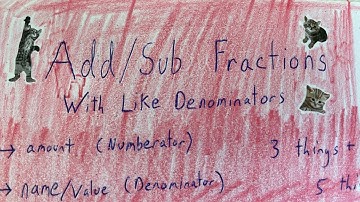 Add/Sub Fractions
With Like Denominators
→ amount (Numberator) 3 things +
→ name/value (Denominator) 5 thi